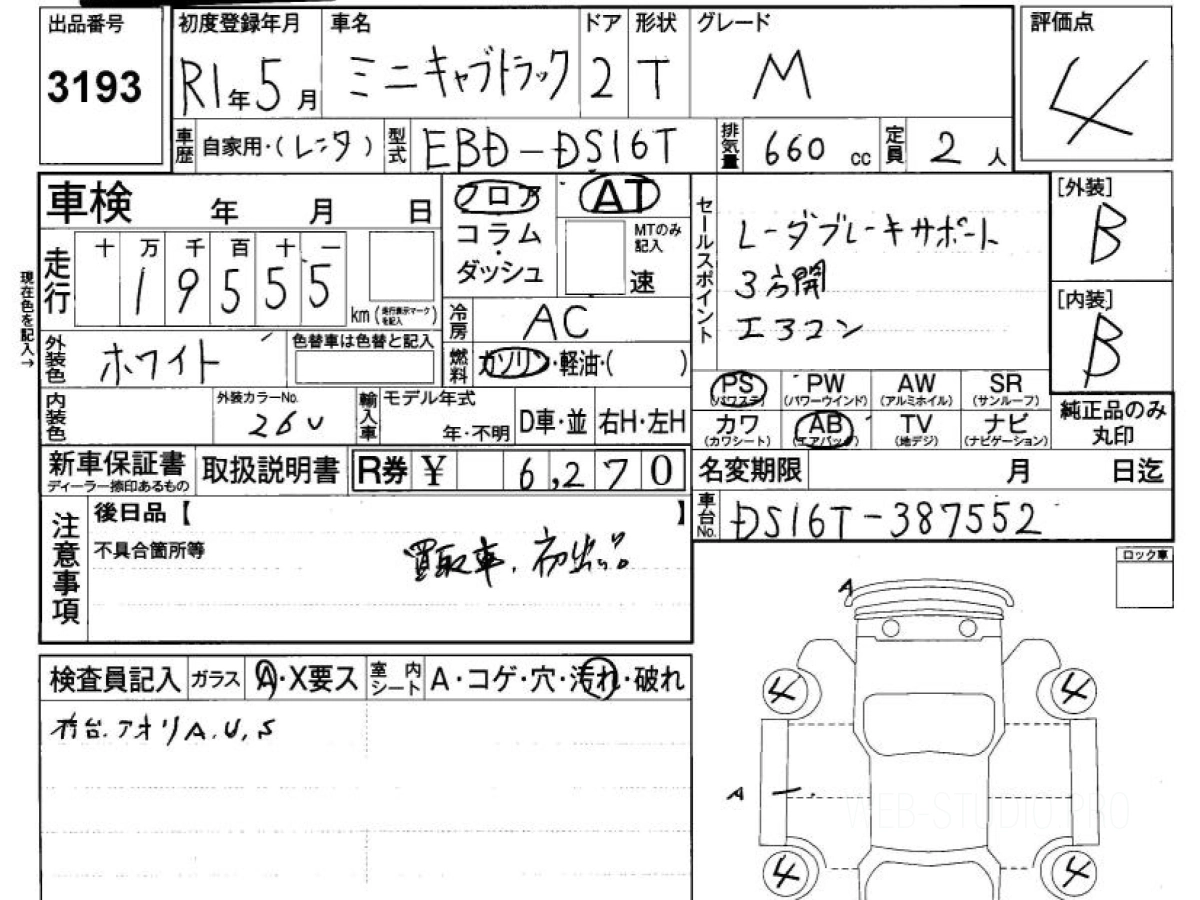 出品番号
3193
初度登録年月
R1年5月
車名
ミニキャブトラック
ドア
2
形状
T
グレード
M
評価点
4
車歴
自家用・(レンタ)
型式
EBD-DS16T
排気量
660 cc
定員
2人
車検 年 月 日
フロア
コラム
・
ダッシュ
AT
MTのみ記入
速
セールスポイント
レーダブレーキサポート
3方開
エアコン
[外装]
B
[内装]
B
現在色を記入→
走行
十 万 千 百 十 一
1 9 5 5 5
km(走行表示マークを記入)
冷房
AC
燃料
ガソリン・軽油・( )
外装色
ホワイト
色替車は色替と記入
内装色
外装カラーNo.
26U
輸入車
モデル年式
年・不明
D車・並
右H・左H
PS
(パワステ)
PW
(パワーウインド)
AW
(アルミホイル)
SR
(サンルーフ)
カワ
(カワシート)
AB
(エアバッグ)
TV
(地デジ)
ナビ
(ナビゲーション)
純正品のみ
丸印
新車保証書
ディーラー捺印あるもの
取扱説明書
R券 ¥ 6,270
名変期限 月 日迄
車台No.
DS16T-387552
注意事項
後日品【 】
不具合箇所等
買取車、初出品
ロック車
A
検査員記入
ガラス
A・X要ス
室内シート
A・コゲ・穴・汚れ・破れ
荷台.アオリA.U.S
4
4
A
4
4
WEB-STUDIO.PRO